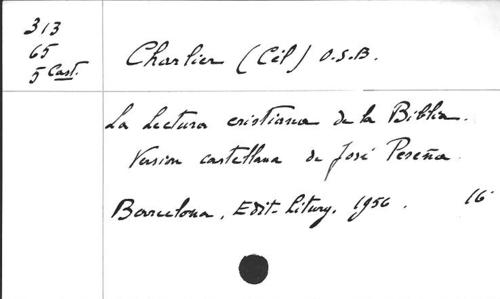 313
65
5 Cast.
Charlier (Cél) O.S.B.
La Lectura cristiana de la Biblia.
Version castellana de José Pereña.
Barcelona, Edit. Liturg. 1956. 16º